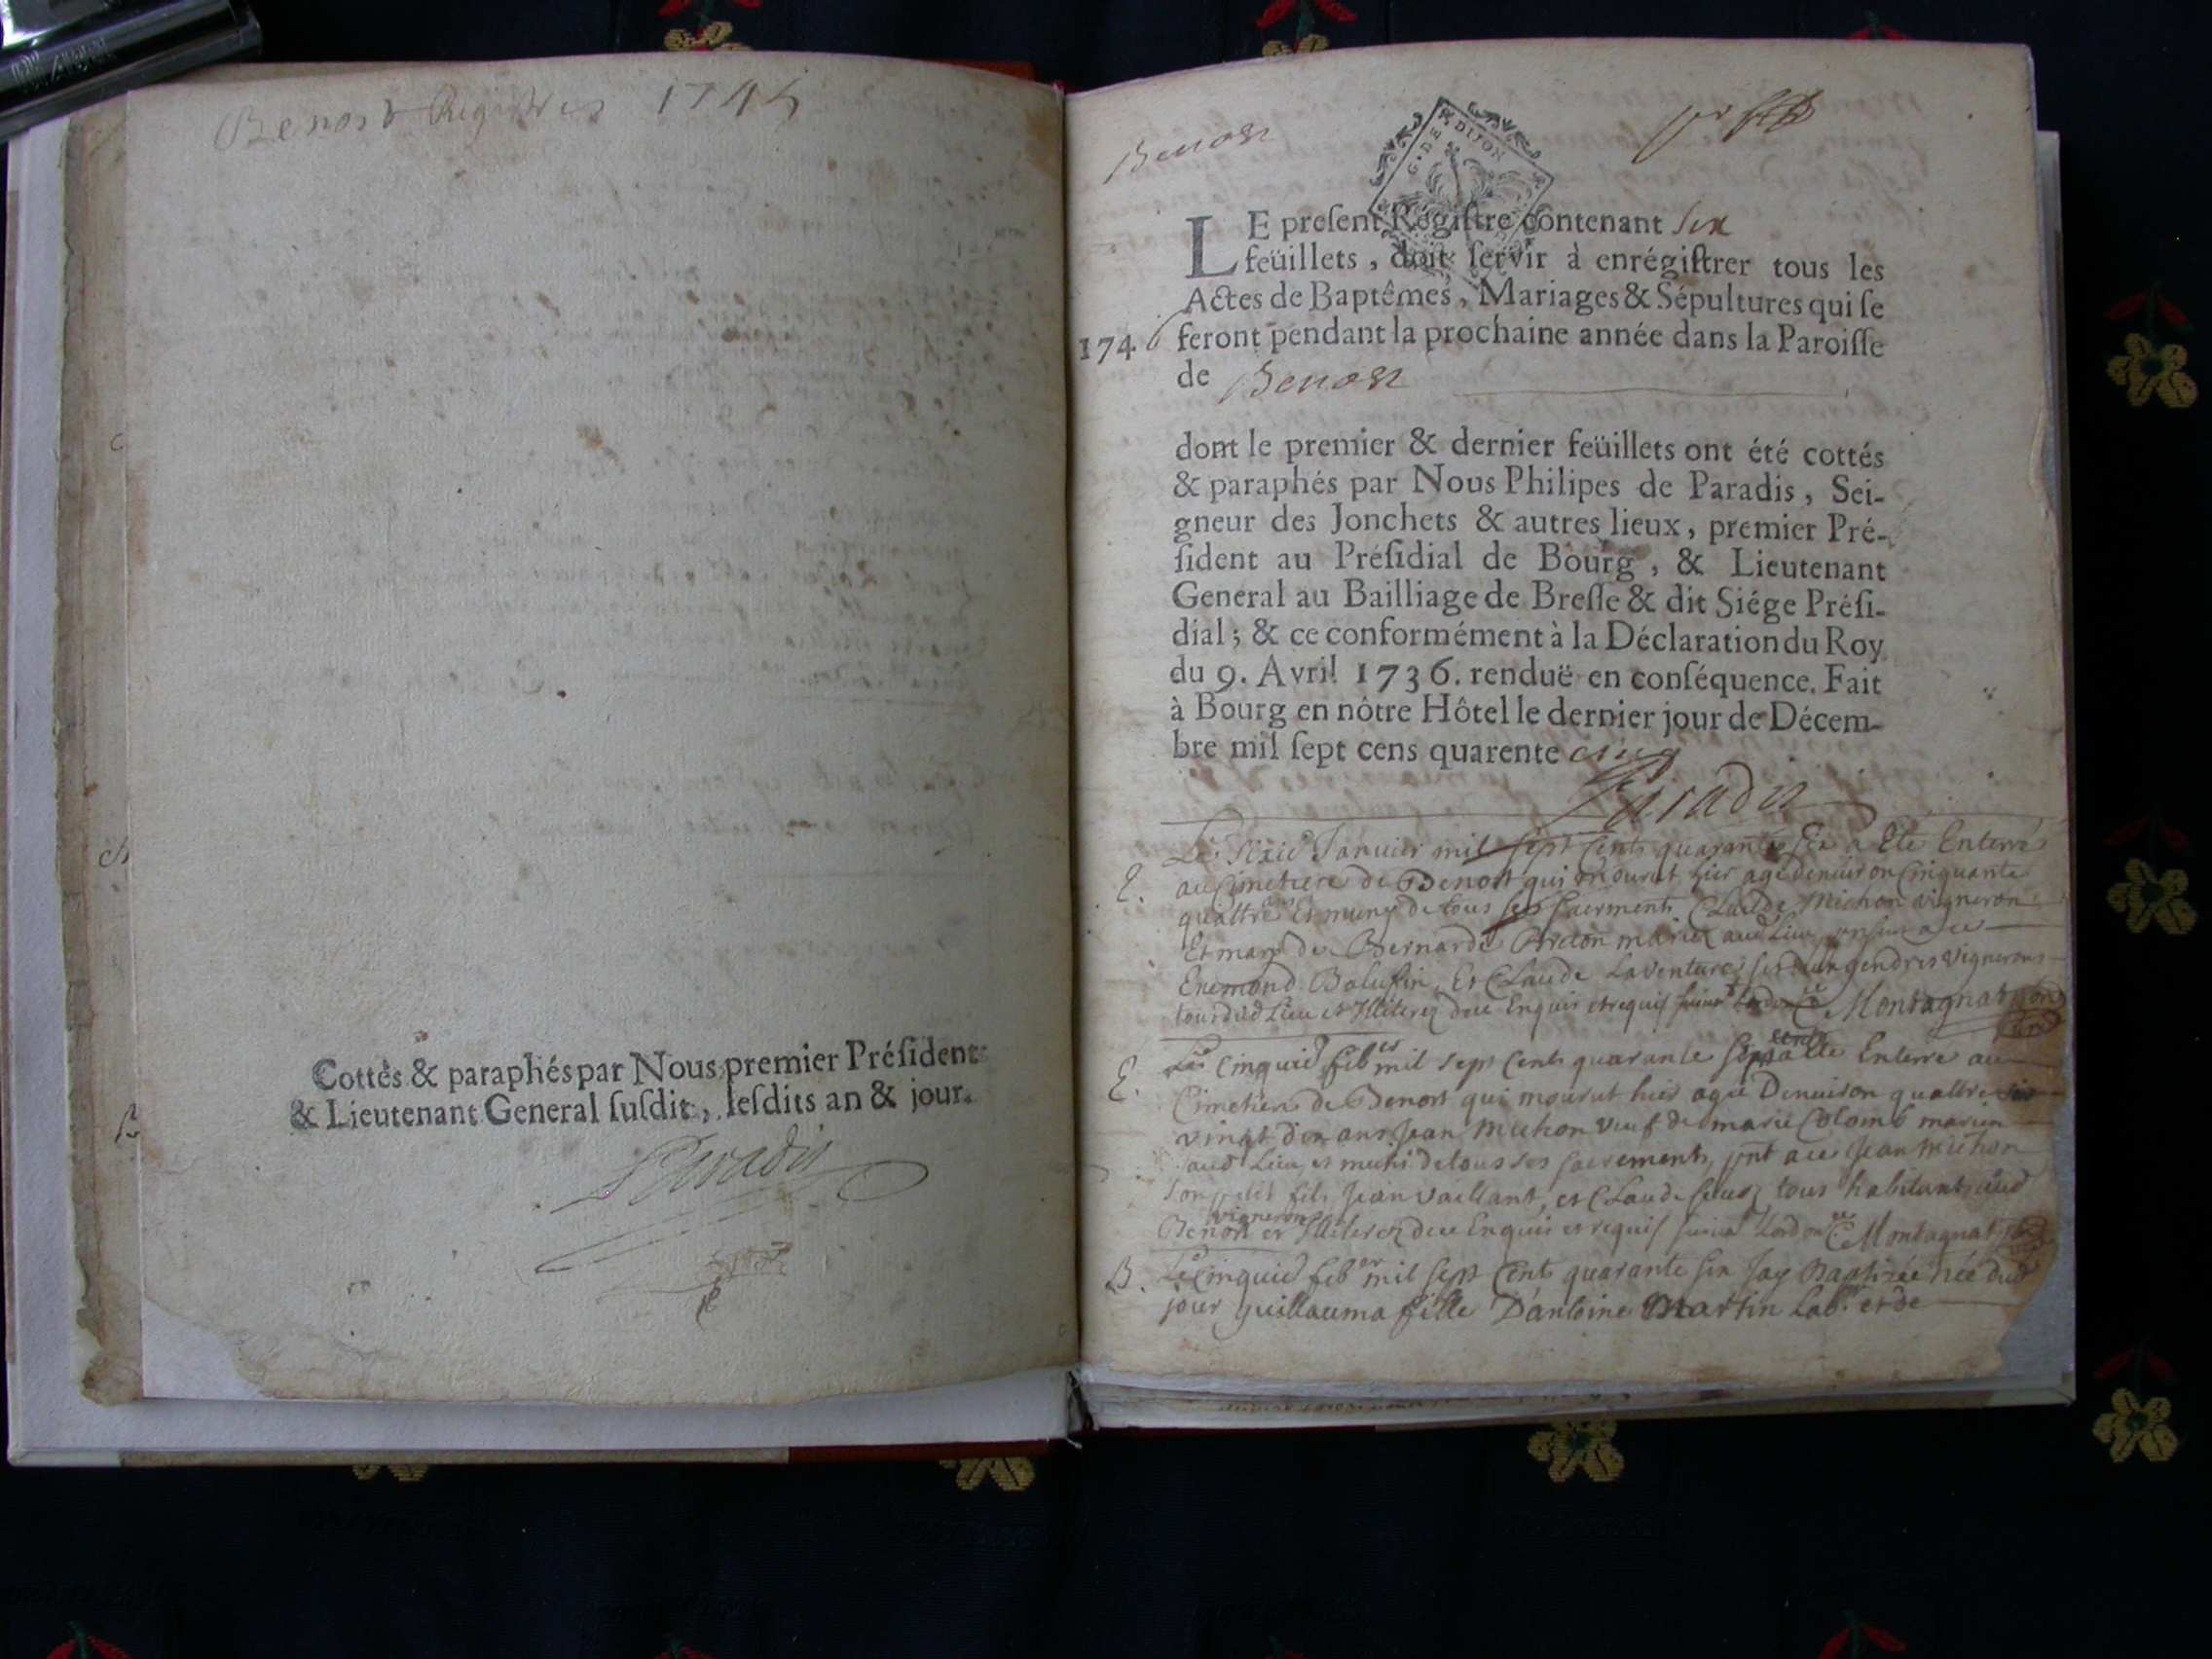 Benost Registres 1745
Cottés & paraphés par Nous premier Président
& Lieutenant General ſuſdit, leſdits an & jour.
Paradis
Benost
pr
G. DE DIJON
LE preſent Régiſtre contenant six
feüillets, doit ſervir à enrégiſtrer tous les
Actes de Baptêmes, Mariages & Sépultures qui ſe
1746 feront pendant la prochaine année dans la Paroiſſe
de Benost
dont le premier & dernier feüillets ont été cottés
& paraphés par Nous Philipes de Paradis, Sei-
gneur des Jonchets & autres lieux, premier Pré-
ſident au Préſidial de Bourg, & Lieutenant
General au Bailliage de Breſſe & dit Siége Préſi-
dial; & ce conformément à la Déclaration du Roy
du 9. Avril 1736. renduë en conſéquence. Fait
à Bourg en nôtre Hôtel le dernier jour de Décem-
bre mil ſept cens quarente cinq
Paradis
Le Janvier mil sept cents quarante six a Eté Enterré
E. au Cimetiere de Benost qui mourut hier agé denuiron Cinquante
quattre et muny de tous ses Claude Michon vigneron
Et mary de Bernarde aud Lieu
Enemond Et Claude Laventure ses deux gendres vignerons
tous dud Lieu et Illiterez Enquis et requis Montagnat
E. Le Cinquie mil sept Cents quarante six a Ete Enterré au
Cimetiere de Benost qui mourut hier agé Denuiron quattre
vingt dix ans Jean Michon veuf de marie Colomb
aud Lieu et muni de tous ses sacrements, Jean Michon
son petit fils Jean Vaillant, et Claude tous habitants aud
vignerons
Benost et Illiterez Enquis et requis Montagnat
B. Le Cinquie feb mil sept Cents quarante six Jay Baptizée née dud
jour guillauma fille D'antoine Martin Lab. et de